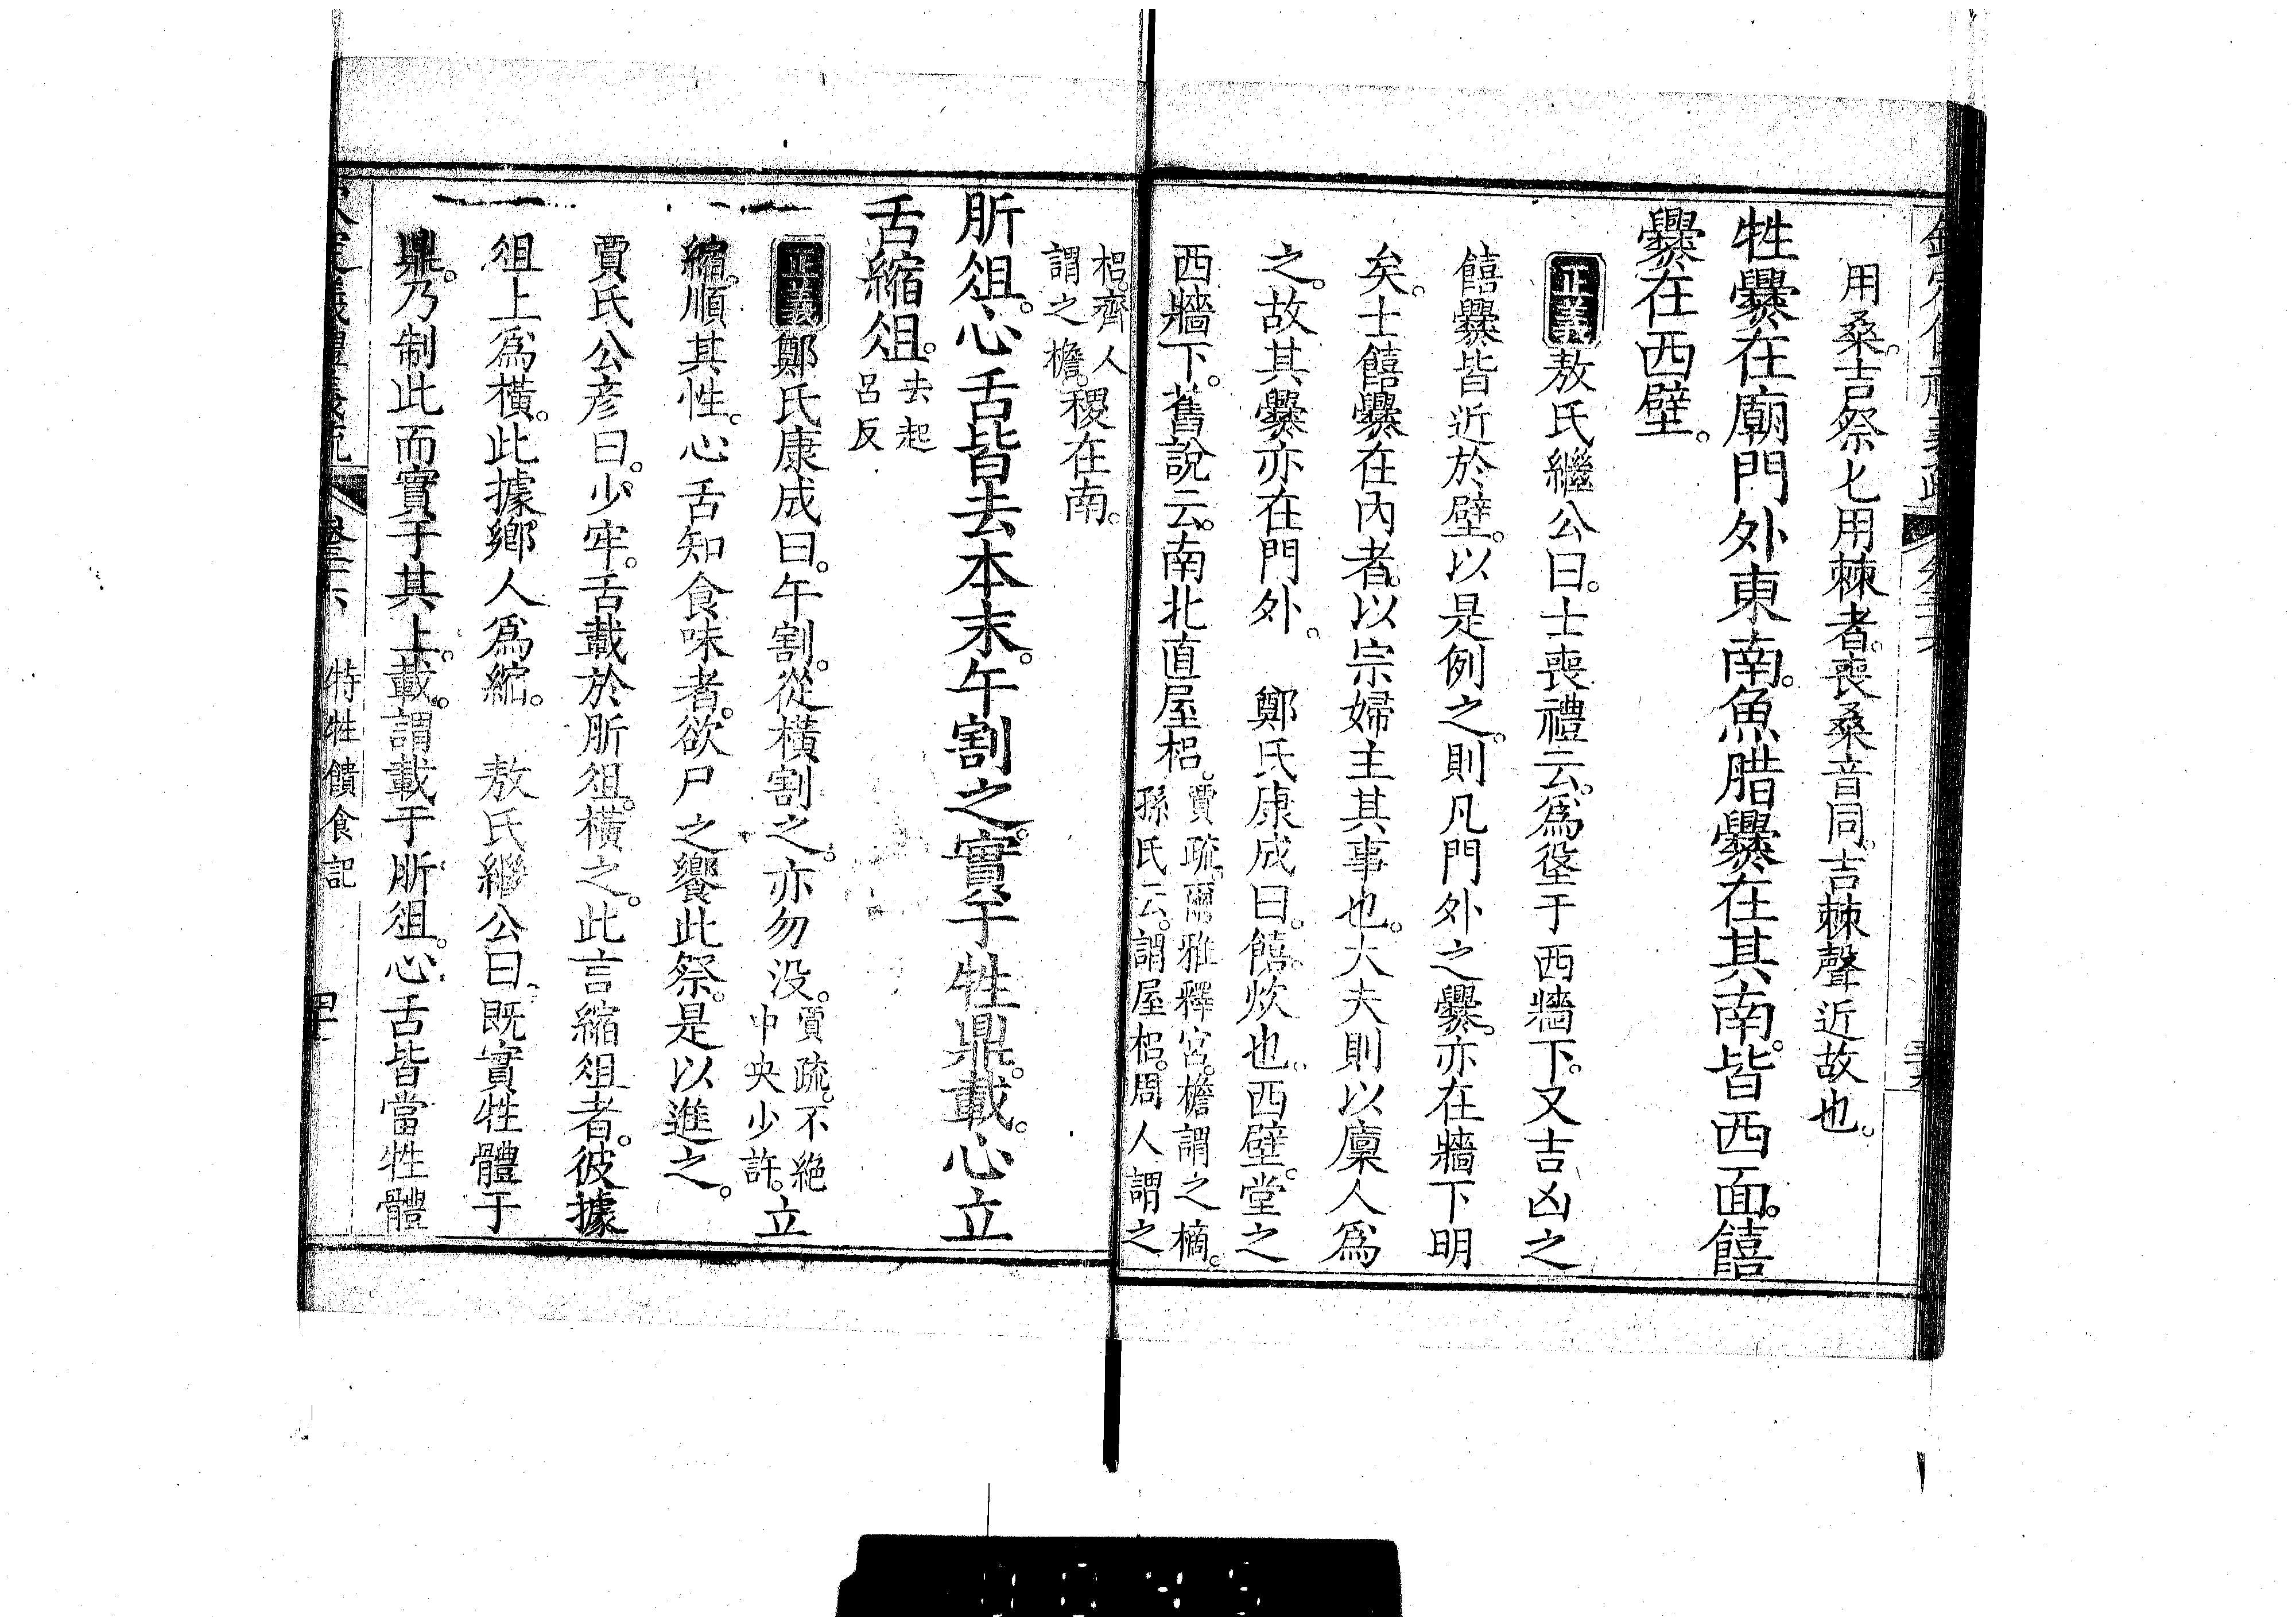 用桑。吉祭匕用棘者。喪桑音同。吉棘聲近故也。
牲爨在廟門外東南。魚腊爨在其南。皆西面。饎
爨在西壁。
正義敖氏繼公曰。士喪禮云。爲垼于西牆下。又吉凶之
饎爨皆近於壁。以是例之。則凡門外之爨。亦在牆下明
矣。士饎爨在內者。以宗婦主其事也。大夫則以廩人爲
之。故其爨亦在門外。 鄭氏康成曰。饎炊也。西壁。堂之
西牆下。舊說云。南北直屋梠。賈疏。爾雅釋宮。檐謂之樀。孫氏云。謂屋梠。周人謂之
梠。齊人謂之檐。稷在南。
肵俎。心舌皆去本末。午割之。實于牲鼎。載。心立
舌縮俎。去起呂反
正義鄭氏康成曰。午割。從橫割之。亦勿沒。賈疏。不絕中央少許。立
縮。順其性。心舌知食味者。欲尸之饗此祭。是以進之。
賈氏公彥曰。少牢。舌載於肵俎。橫之。此言縮俎者。彼據
俎上爲橫。此據鄉人爲縮。 敖氏繼公曰。既實牲體于
鼎。乃制此而實于其上。載。謂載于肵俎。心舌皆當牲體
特牲饋食記